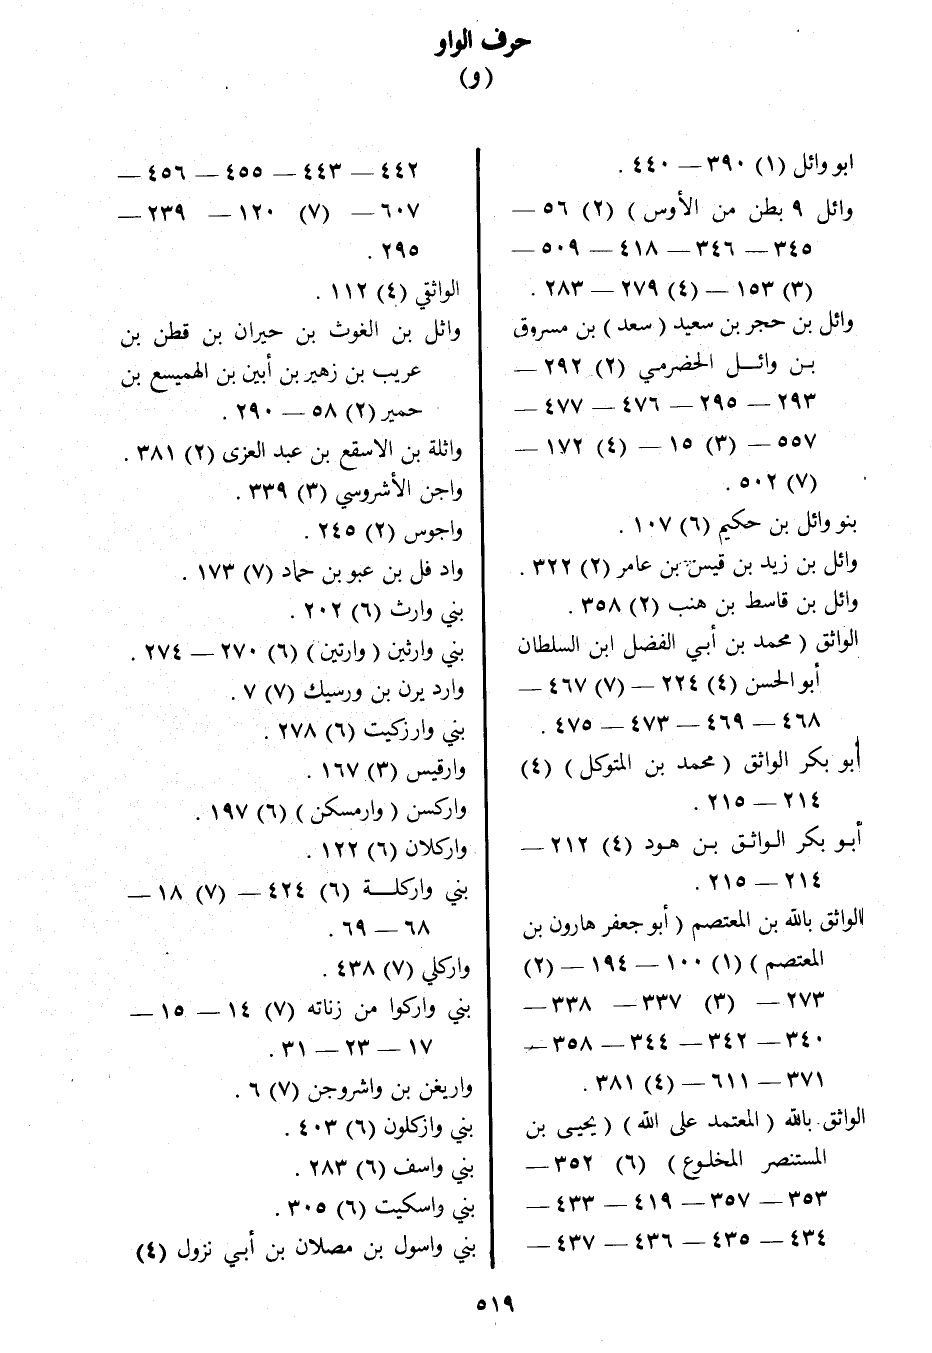 حرف الواو
(و)
ابو وائل (١) ٣٩٠ — ٤٤٠ .
وائل ٩ بطن من الأوس ) (٢) ٥٦ —
٣٤٥ — ٣٤٦ — ٤١٨ — ٥٠٩ —
(٣) ١٥٣ — (٤) ٢٧٩ — ٢٨٣ .
وائل بن حجر بن سعيد ( سعد ) بن مسروق
بن وائل الحضرمي (٢) ٢٩٢ —
٢٩٣ — ٢٩٥ — ٤٧٦ — ٤٧٧ —
٥٥٧ — (٣) ١٥ — (٤) ١٧٢ —
(٧) ٥٠٢ .
بنو وائل بن حكيم (٦) ١٠٧ .
وائل بن زيد بن قيس بن عامر (٢) ٣٢٢ .
وائل بن قاسط بن هنب (٢) ٣٥٨ .
الواثق ( محمد بن أبي الفضل ابن السلطان
أبو الحسن (٤) ٢٢٤ — (٧) ٤٦٧ —
٤٦٨ — ٤٦٩ — ٤٧٣ — ٤٧٥ .
أبو بكر الواثق ( محمد بن المتوكل ) (٤)
٢١٤ — ٢١٥ .
أبو بكر الواثق بن هود (٤) ٢١٢ —
٢١٤ — ٢١٥ .
الواثق بالله بن المعتصم ( أبو جعفر هارون بن
المعتصم ) (١) ١٠٠ — ١٩٤ — (٢)
٢٧٣ — (٣) ٣٣٧ — ٣٣٨ —
٣٤٠ — ٣٤٢ — ٣٤٤ — ٣٥٨ —
٣٧١ — ٦١١ — (٤) ٣٨١ .
الواثق بالله ( المعتمد على الله ) ( يحيى بن
المستنصر المخلوع ) (٦) ٣٥٢ —
٣٥٣ — ٣٥٧ — ٤١٩ — ٤٣٣ —
٤٣٤ — ٤٣٥ — ٤٣٦ — ٤٣٧ —
٤٤٢ — ٤٤٣ — ٤٥٥ — ٤٥٦ —
٦٠٧ — (٧) ١٢٠ — ٢٣٩ —
٢٩٥ .
الواثقي (٤) ١١٢ .
واثل بن الغوث بن حيران بن قطن بن
عريب بن زهير بن أبين بن الهميسع بن
حمير (٢) ٥٨ — ٢٩٠ .
واثلة بن الاسقع بن عبد العزى (٢) ٣٨١ .
واجن الأشروسي (٣) ٣٣٩ .
واجوس (٢) ٢٤٥ .
واد فل بن عبو بن حماد (٧) ١٧٣ .
بني وارث (٦) ٢٠٢ .
بني وارثين ( وارتين ) (٦) ٢٧٠ — ٢٧٤ .
وارد يرن بن ورسيك (٧) ٧ .
بني وارزكيت (٦) ٢٧٨ .
وارقيس (٣) ١٦٧ .
واركسن ( وارمسكن ) (٦) ١٩٧ .
واركلان (٦) ١٢٢ .
بني واركلة (٦) ٤٢٤ — (٧) ١٨ —
٦٨ — ٦٩ .
واركلي (٧) ٤٣٨ .
بني واركوا من زناته (٧) ١٤ — ١٥ —
١٧ — ٢٣ — ٣١ .
واريغن بن واشروجن (٧) ٦ .
بني وازكلون (٦) ٤٠٣ .
بني واسف (٦) ٢٨٣ .
بني واسكيت (٦) ٣٠٥ .
بني واسول بن مصلان بن أبي نزول (٤)
٥١٩